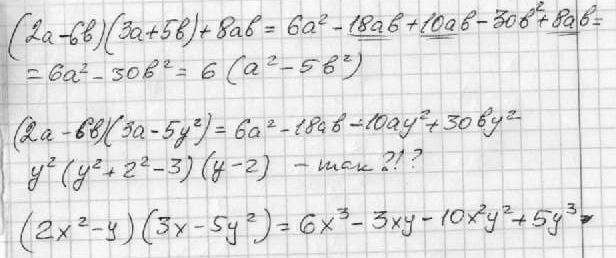 (2a-6в)(3a+5в)+8aв = 6a² - 18aв + 10aв - 30в² + 8aв =
= 6a² - 30в² = 6 (a² - 5в²)
(2a - 6в)(3a - 5y²) = 6a² - 18aв - 10ay² + 30вy²
y² (y² + 2² - 3) (y - 2) - так ?!?
(2x² - y) (3x - 5y²) = 6x³ - 3xy - 10x²y² + 5y³